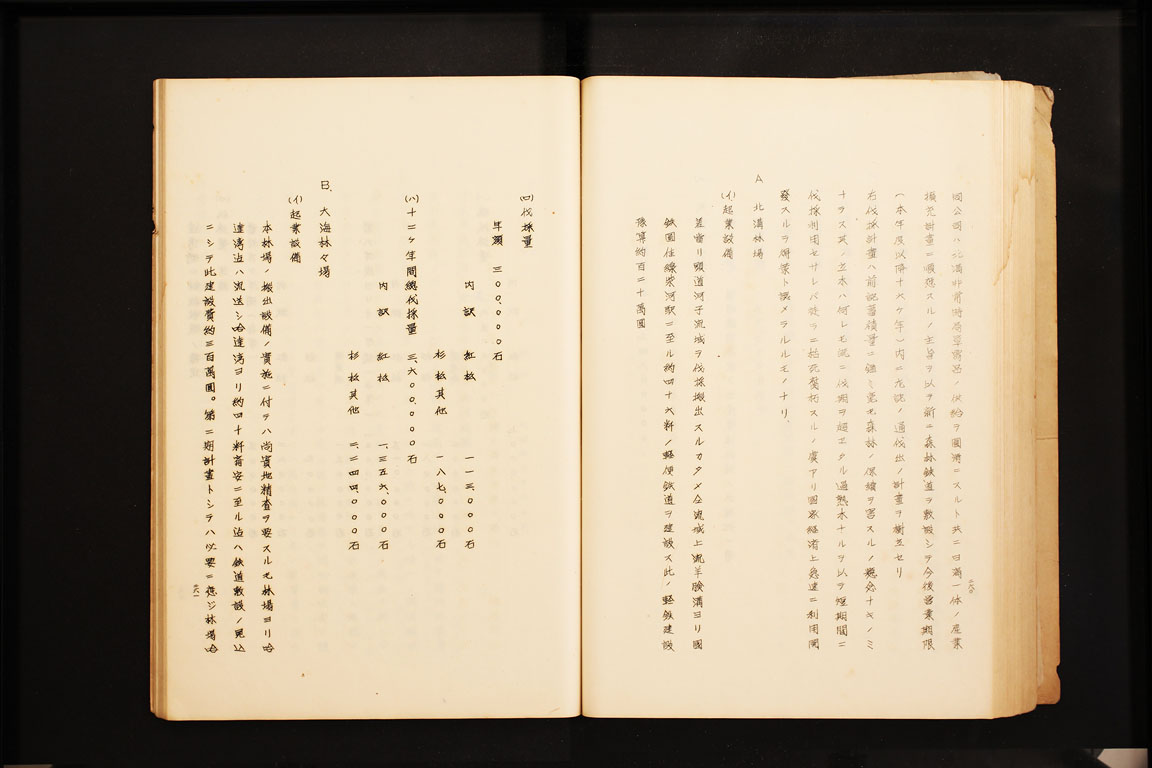 同公司ハ北満非常時局至需品ノ供給ヲ圓滑ニスルト共ニ日満一体ノ産業
擴充計畫ニ順應スルノ主旨ヲ以テ新ニ森林鉄道ヲ敷設シテ今後営業期限
(本年度以降十六ケ年)内ニ左記ノ通伐出ノ計畫ヲ樹立セリ
右伐採計畫ハ前記蓄積量ニ鑑ミ毫モ森林ノ保續ヲ害スルノ懸念ナキノミ
ナラス其ノ立木ハ何レモ既ニ伐期ヲ超エタル過熟木ナルヲ以テ短期間ニ
伐採利用セサレバ徒ラニ枯死腐朽スルノ虞アリ國家経濟上急速ニ利用開
發スルヲ得業ト認メラルルモノナリ、
A 北溝林場
(イ)起業設備
亜雷リ頭道河子流域ヲ伐採搬出スルカタメ仝流域上流羊臉溝ヨリ國
鉄圖佳線柴河駅ニ至ル約四十六粁ノ軽便鉄道ヲ建設ス此ノ軽鉄建設
豫算約百二十萬圓
二六〇
(ロ)伐採量
年額 三〇〇、〇〇〇石
内訳 紅松 一一三〇〇〇石
杉松其他 一八七、〇〇〇石
(ハ)十二ケ年間總伐採量 三、六〇〇、〇〇〇石
内訳 紅松 一、三五六、〇〇〇石
杉松其他 二、二四四、〇〇〇石
B、大海林々場
(イ)起業設備
本林場ノ搬出設備ノ實施ニ付テハ尚實地精査ヲ要スルモ林場ヨリ哈
達湾迄ハ流送シ哈達湾ヨリ約四十粁育安ニ至ル迄ハ鉄道敷設ノ見込
ニシテ此建設費約三百萬圓。第二期計畫トシテハ必要ニ應ジ林場哈
二六一